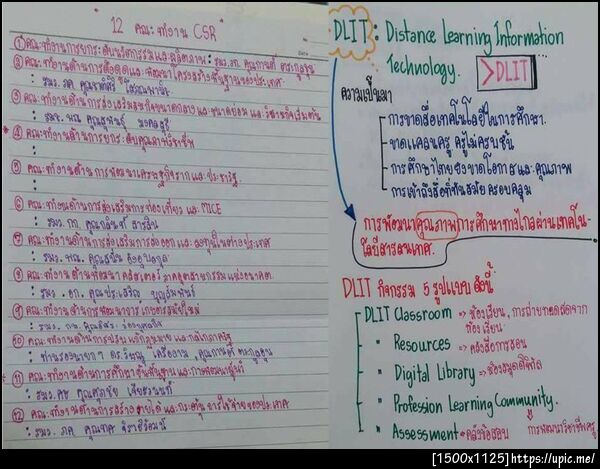 12 คณะทำงาน CSR
① คณะทำงานการยกระดับนวัตกรรมและผลิตภาพ : รมว.วท. คุณกานต์ ตระกูลฮุน
② คณะทำงานด้านการดึงดูด และพัฒนาโครงสร้างพื้นฐานของประเทศ
③ คณะทำงานด้านการส่งเสริมวิสาหกิจขนาดกลาง และขนาดย่อม และวิสาหกิจเริ่มต้น
④ คณะทำงานด้านการยกระดับคุณภาพวิชาชีพ
⑤ คณะทำงานด้านการพัฒนาเศรษฐกิจฐานราก และประชารัฐ
⑥ คณะทำงานด้านการส่งเสริมการท่องเที่ยว และ MICE
: รมว. กก. คุณกลินท์ สารสิน
⑦ คณะทำงานด้านการส่งเสริมการส่งออก และลงทุนในต่างประเทศ
: รมว. พณ.
⑧ คณะทำงานด้านพัฒนาคลัสเตอร์ภาคอุตสาหกรรมแห่งอนาคต
: รมว. อก.
⑨ คณะทำงานด้านการพัฒนาการเกษตรสมัยใหม่
: รมว. กษ.
⑩ คณะทำงานด้านการปรับแก้กฎหมาย และกลไกภาครัฐ
: ท่านรองนายกฯ ดร.วิษณุ เครืองาม, คุณกานต์ ตระกูลฮุน
⑪ คณะทำงานด้านการศึกษาขั้นพื้นฐาน และการพัฒนาผู้นำ
: รมว. ศธ คุณศุภชัย เจียรวนนท์
⑫ คณะทำงานด้านการสร้างรายได้ และกระตุ้นการใช้จ่ายของประเทศ
: รมว. กค คุณทศ จิราธิวัฒน์
DLIT : Distance Learning Information
Technology.
>DLIT
ความเป็นมา
การขาดสื่อเทคโนโลยีในการศึกษา.
ขาดแคลนครู ครูไม่ครบชั้น
การศึกษาไทยยังขาดโอกาสและคุณภาพ
การเข้าถึงสื่อที่ทันสมัย ครอบคลุม
การพัฒนาคุณภาพการศึกษาทางไกลผ่านเทคโน-
โลยีสารสนเทศ.
DLIT กิจกรรม 5 รูปแบบ ดังนี้
DLIT Classroom => ห้องเรียน, การถ่ายทอดสดจาก
ห้องเรียน.
" Resources => คลังสื่อการสอน
" Digital Library => ห้องสมุดดิจิทัล
" Profession Learning Community.
การพัฒนาวิชาชีพครู
" Assessment => คลังข้อสอบ
[1500x1125]https://upic.me/